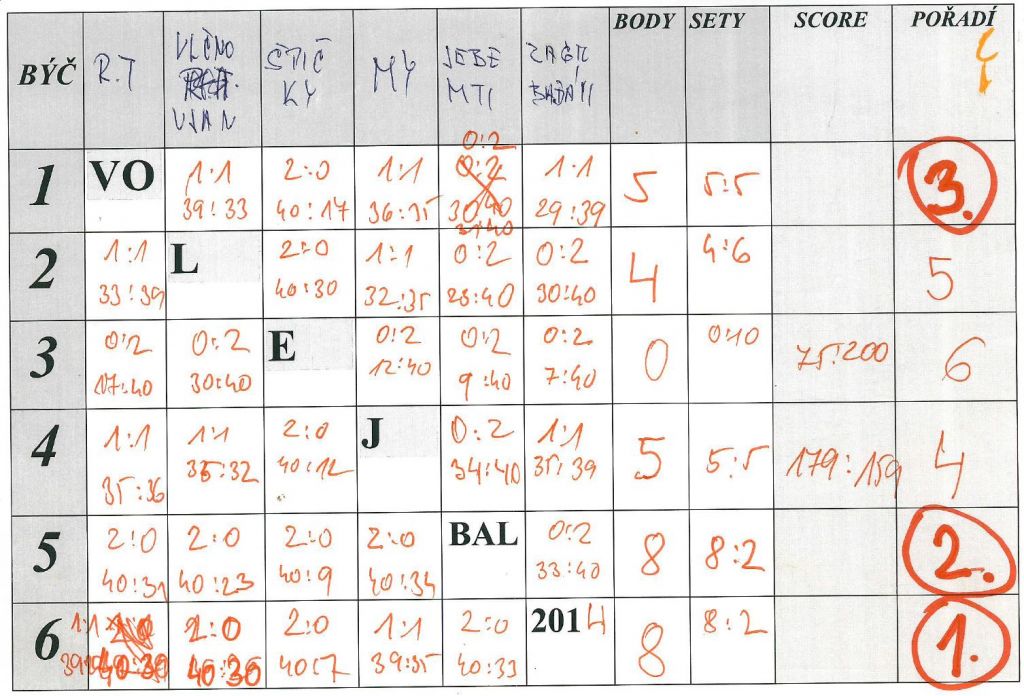 BODY SETY SCORE POŘADÍ
BÝČ R.T VLČNO MY JEBE
KY MTI
VJAN
0:2
1 VO 1:1 2:0 1:1 1:1 5 5:5 3.
39:33 40:17 36:35 29:39
31:40
2 1:1 L 2:0 1:1 0:2 0:2 4 4:6 5
33:39 40:30 32:35 28:40 30:40
3 0:2 0:2 E 0:2 0:2 0:2 0 0:10 75:200 6
17:40 30:40 12:40 9:40 7:40
4 1:1 1:1 2:0 J 0:2 1:1 5 5:5 179:159 4
35:36 35:32 40:12 34:40 35:39
5 2:0 2:0 2:0 2:0 BAL 0:2 8 8:2 2.
40:31 40:23 40:9 40:34 33:40
6 1:1 2:0 2:0 1:1 2:0 2014 8 8:2 1.
40:30 40:7 39:35 40:33